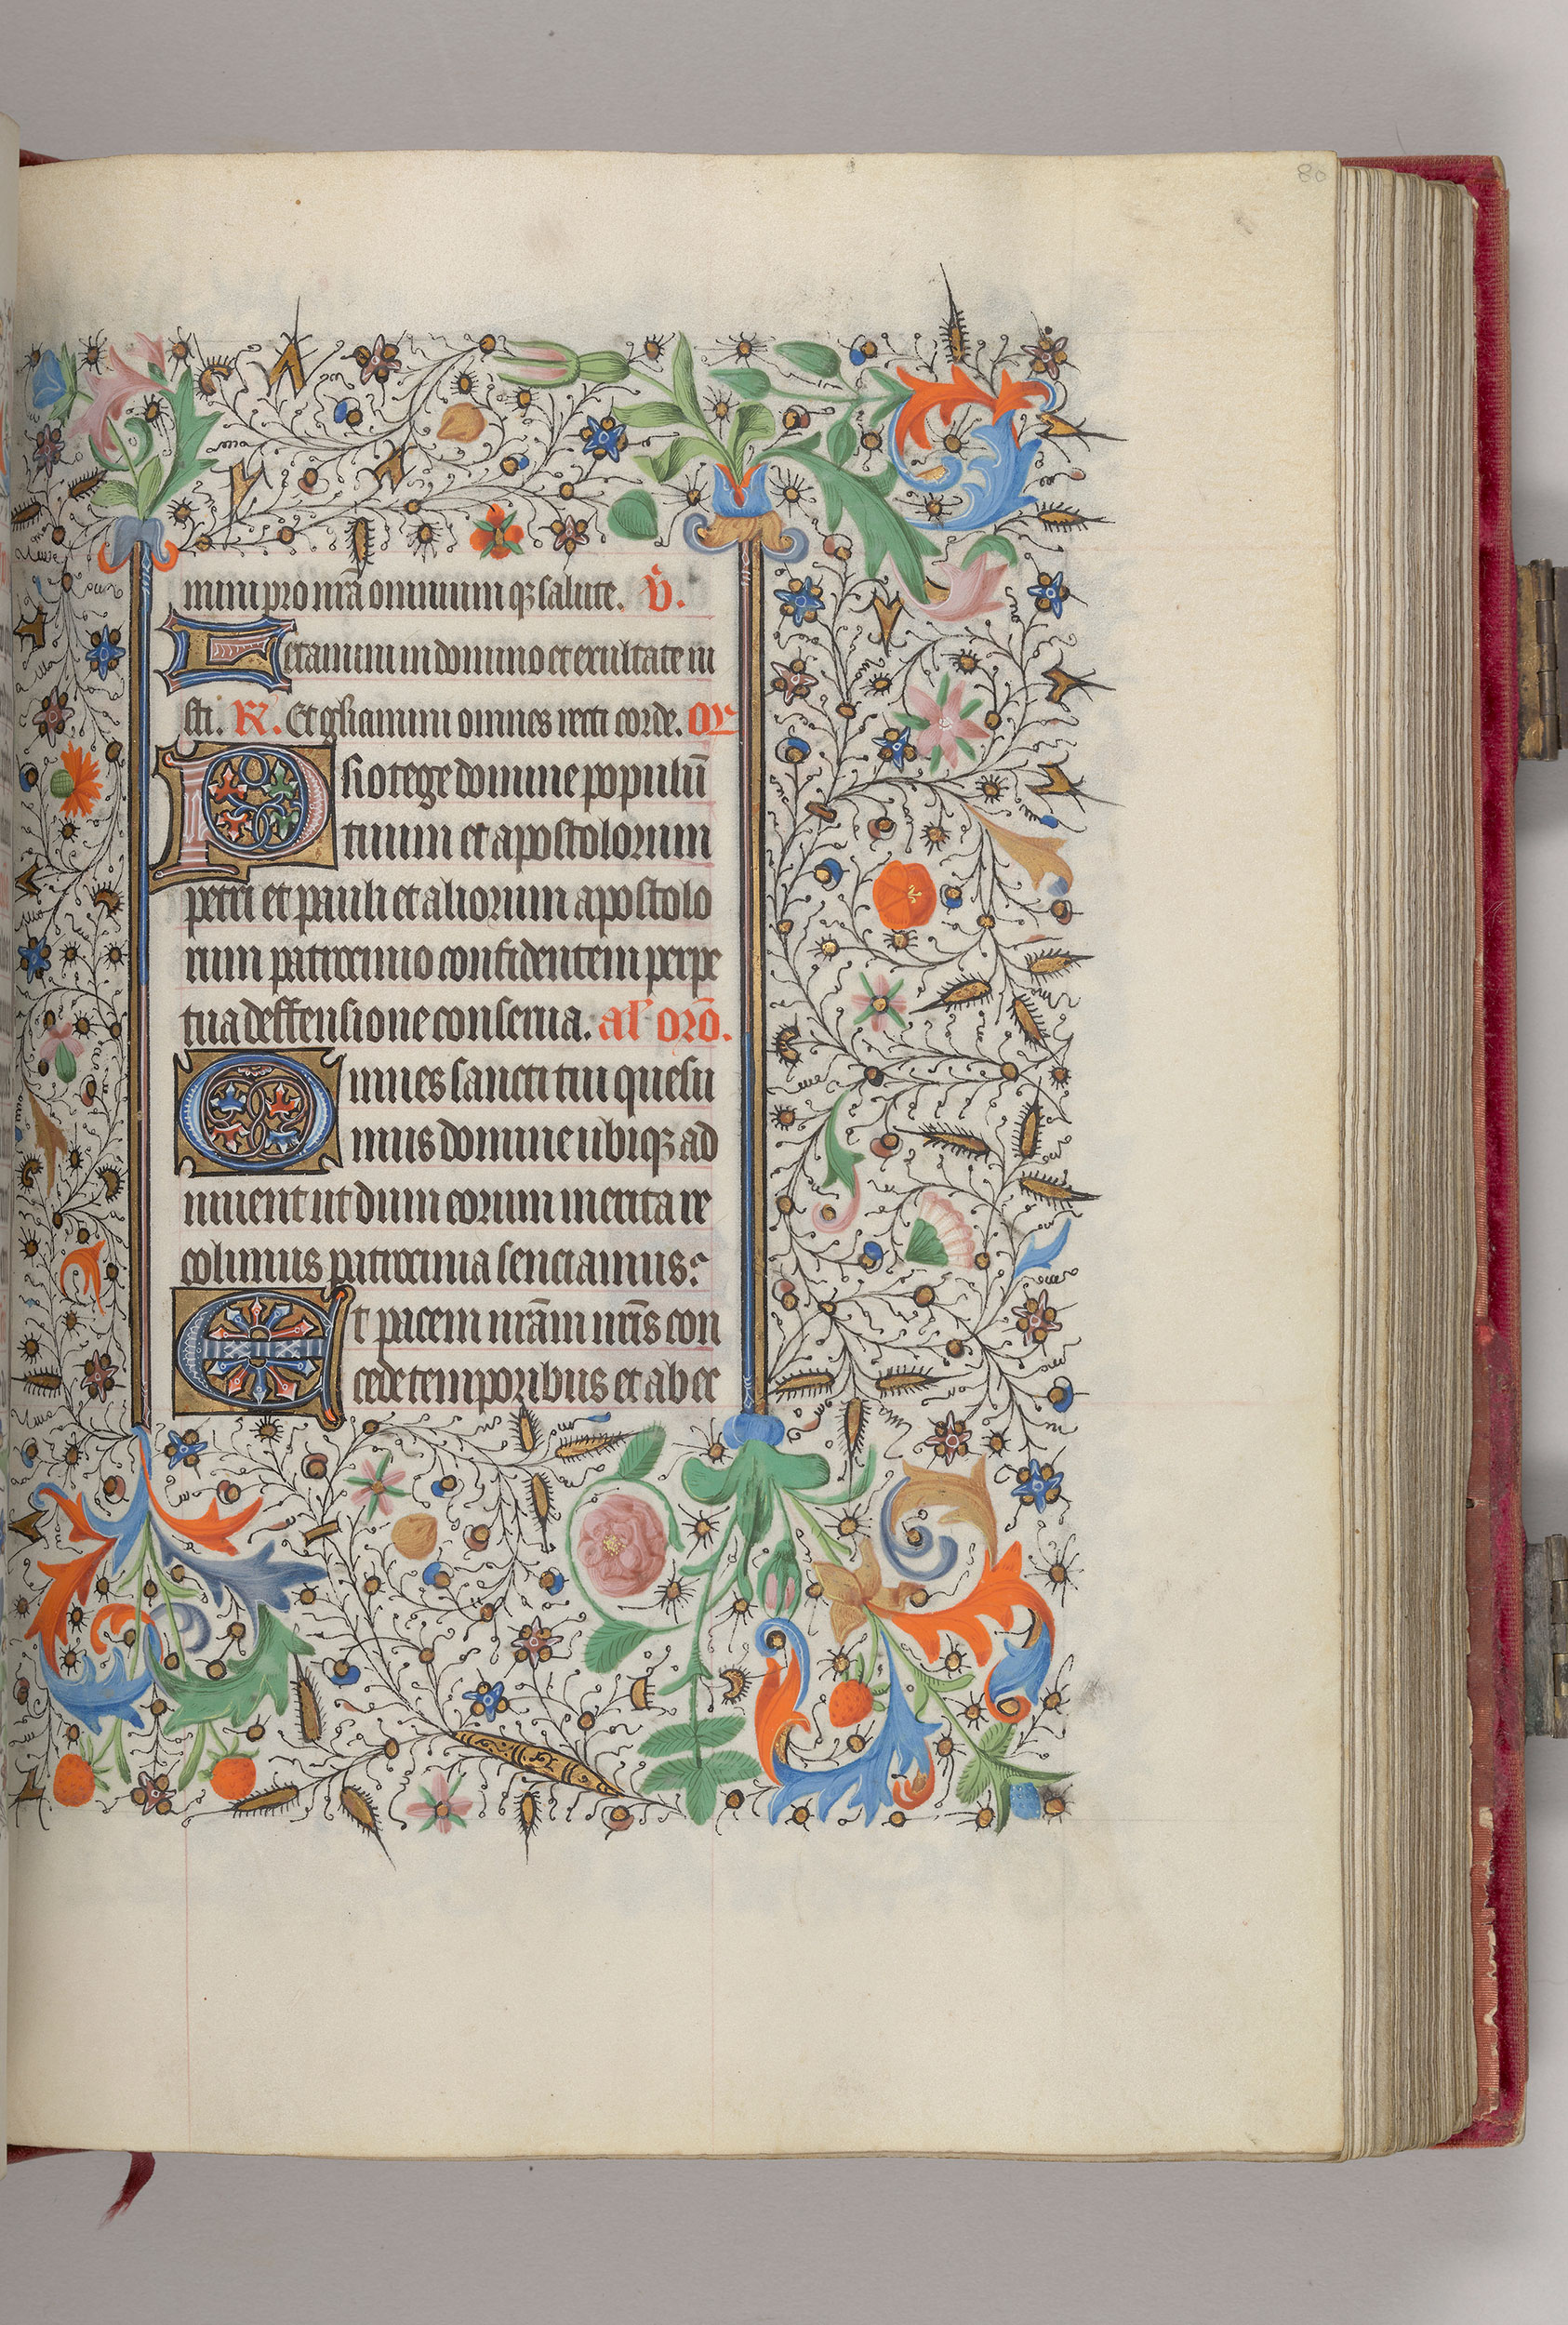 80
mini pro nr̄a omnium qꝫ salute. v̄.
Letamini in domino et exultate iu
sti. R̄. Et gl̄iamini omnes recti corde. Or̄
Protege domine populū
tuum et apostolorum
petri et pauli et aliorum apostolo
rum patrocinio confidentem perpe
tua deffensione conserua. al' orō.
Omnes sancti tui quesu
mus domine ubiqꝫ ad
iuuent ut dum eorum merita re
colimus patrocinia senciamus:
Et pacem nr̄am nr̄is con
cede temporibus et ab ec